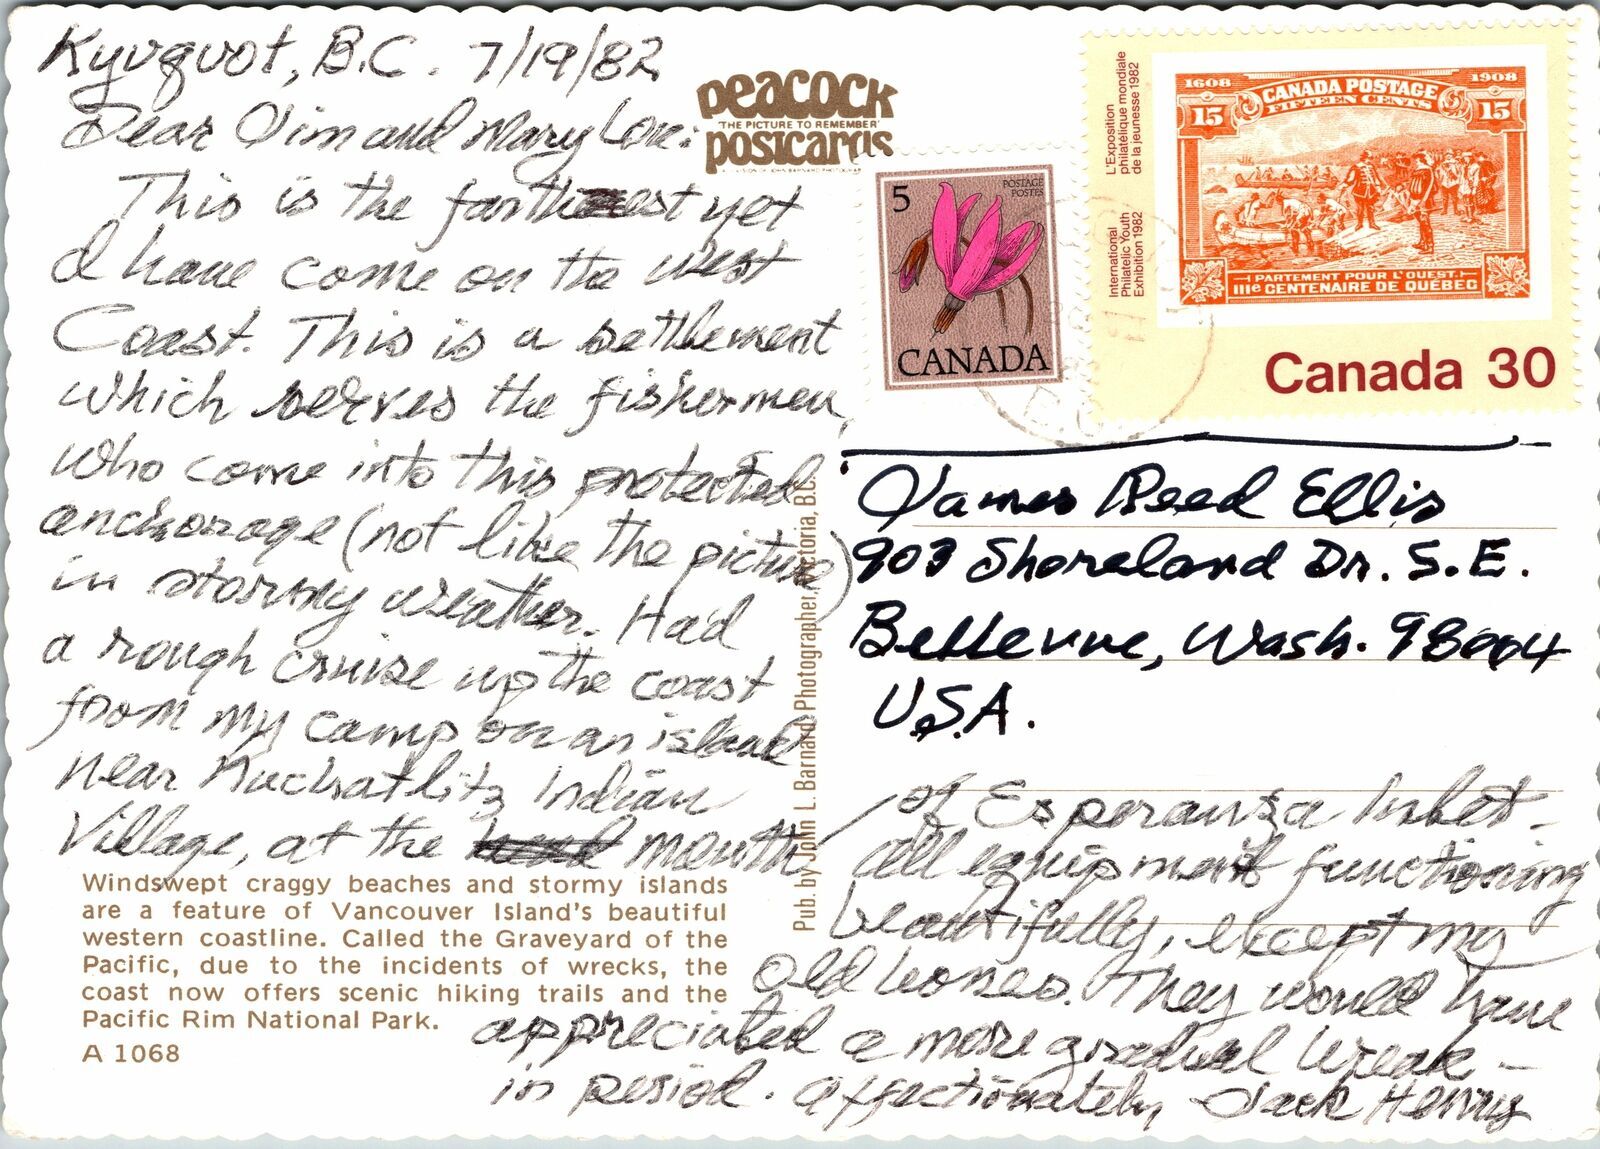 Kyuquot, B.C. 7/19/82
Dear Jim and Mary Lou:
This is the farthest yet
I have come on the west
Coast. This is a settlement
which serves the fishermen,
who come into this protected
anchorage (not like the picture)
in stormy weather. Had
a rough cruise up the coast
from my camp on an island
near Nuchatlitz Indian
Village, at the mouth
of Esperanza Inlet.
All equipment functioning
beautifully, except my
old bones. They would have
appreciated a more gradual break-
in period. Affectionately, Jack Henry
peacock
'THE PICTURE TO REMEMBER'
postcards
Pub. by John L. Barnard, Photographer, Victoria, B.C.
Windswept craggy beaches and stormy islands
are a feature of Vancouver Island's beautiful
western coastline. Called the Graveyard of the
Pacific, due to the incidents of wrecks, the
coast now offers scenic hiking trails and the
Pacific Rim National Park.
A 1068
5
POSTAGE
POSTES
CANADA
L'Exposition
philatélique mondiale
de la jeunesse 1982
International
Philatelic Youth
Exhibition 1982
1608 1908
CANADA POSTAGE
15 FIFTEEN CENTS 15
PARTEMENT POUR L'OUEST.
IIIe CENTENAIRE DE QUÉBEC
Canada 30
James Reed Ellis
903 Shoreland Dr. S.E.
Bellevue, Wash. 98004
U.S.A.